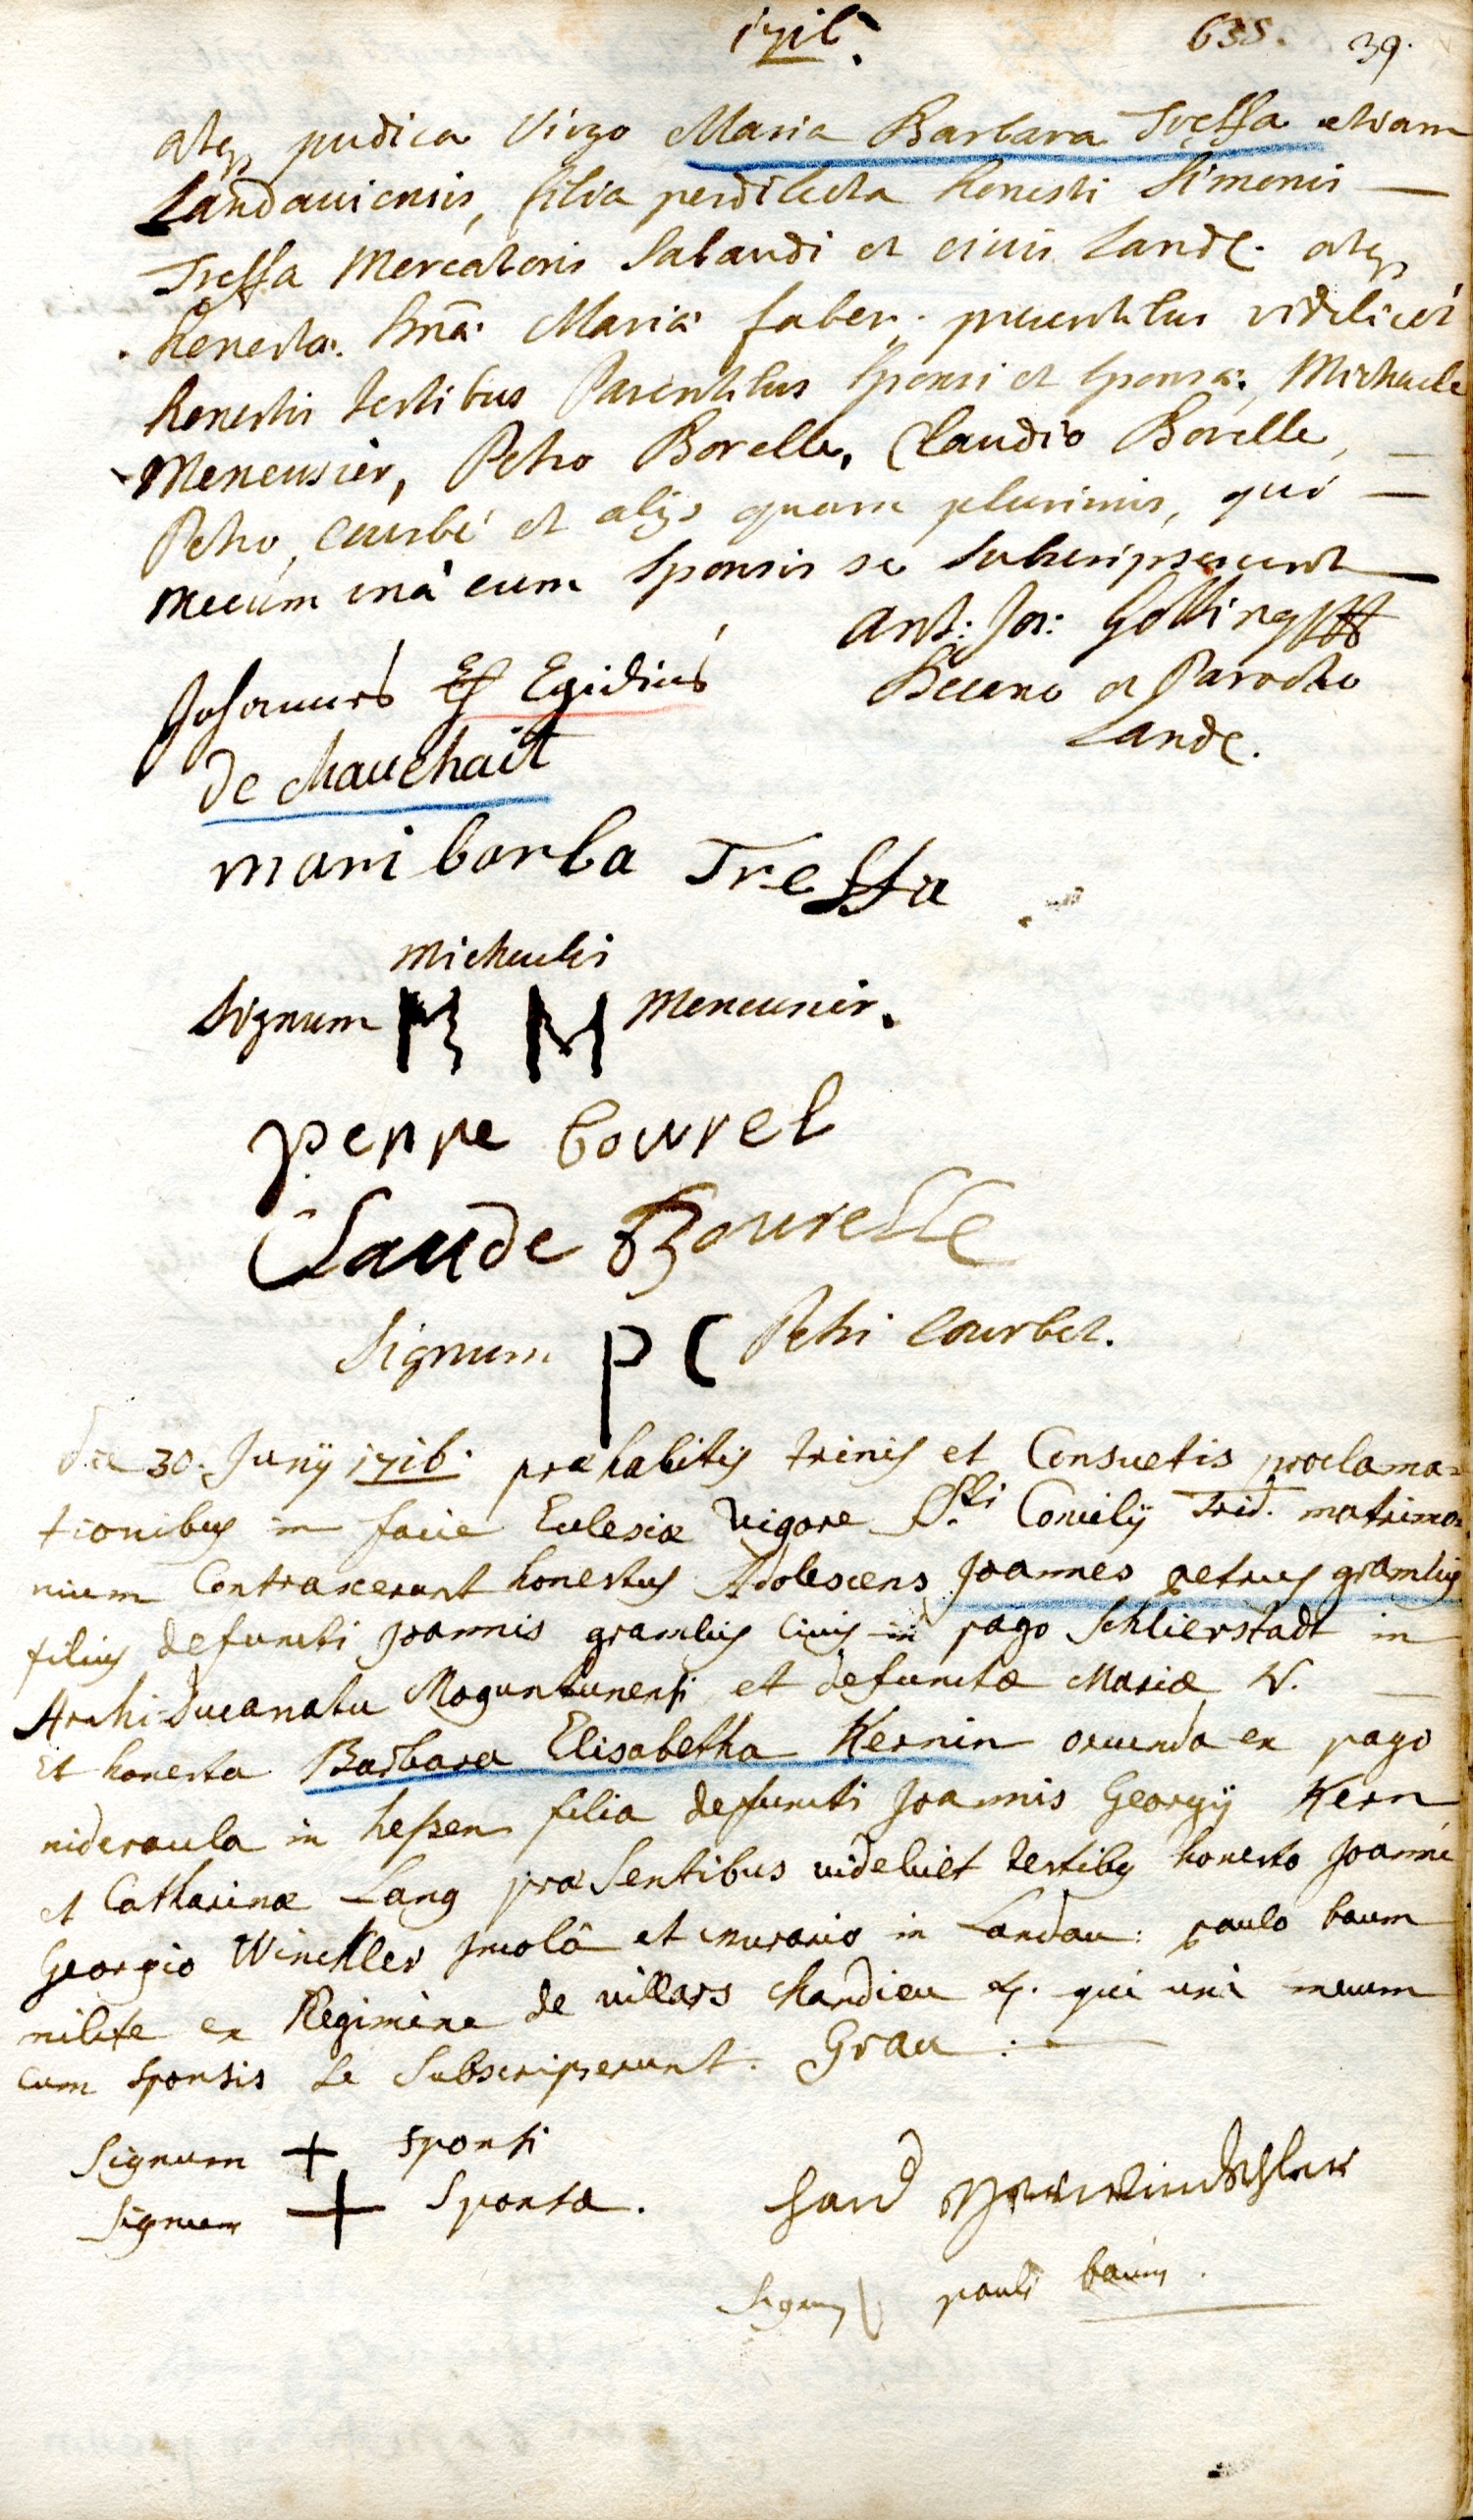 1716.
635. 39.
atq pudica Virgo Maria Barbara Treffa etiam
Landaviensis, filia perdilecta honesti Simonis —
Treffa Mercatoris Salandi et civis Land. atq
honesta Maria faber. praesentibus videlicet
honestis testibus Parentibus sponsi et sponsae, Michaele
Meneusier, Petro Borelle, Claudio Borelle, —
Petro Courbé et alijs quam plurimis, qui —
mecum unà cum sponsis se subscripserunt
Ant: Jos: Götting
Decano et Parocho
Land.
Johannes Egidius
de Mauchait
mari barba Treffa
Michaelis
Signum M M Meneunier.
pierre bourel
Claude Bourelle
Signum P C Petri Courbet.
die 30. Junij 1716. praehabitis trinis et Consuetis proclama=
tionibus in facie Eclesiae vigore S.ti Concilij Trid. matrimo=
nium Contraxerunt honestus Adolescens Joannes petrus gramlig
filius defuncti Joannis gramlig civis in pago Schlierstadt in
Archiducanatu Moguntunensi et defunctae Mariae N. —
Et honesta Barbara Elisabetha Kernin oriunda ex pago
nideraula in heßen filia defuncti Joannis Georgij Kern
et Catharinae Lang praesentibus videlicet testibus honesto Joanne
Georgio Winckler incolâ et murario in Landau: paulo baum
milite ex Regimine de villars Chandieu &. qui unà mecum
cum sponsis se subscripserunt. Grau :—
Signum + sponsi
Signum + Sponsae.
Signum pauli baum.